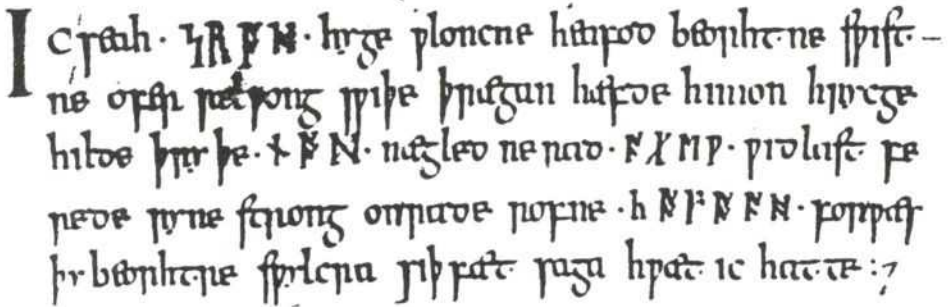 Ic seah · ᛋᚱᚩᚻ · hyge ƿloncne heafod beorhtne sƿift-
ne ofer sæl ƿong sƿiþe þrægan hæfde him on hrycge
hilde þryþe · ᚾᚩᛗ · nægled ne rad · ᚪᚷᛖᚹ · ƿid last fe
rede ryne strong on rade rofne · ᚳᚩᚠᚩᚪᚻ · for ƿæs
þy beorhtre sƿylcra siþ fæt saga hƿæt ic hatte :⁊